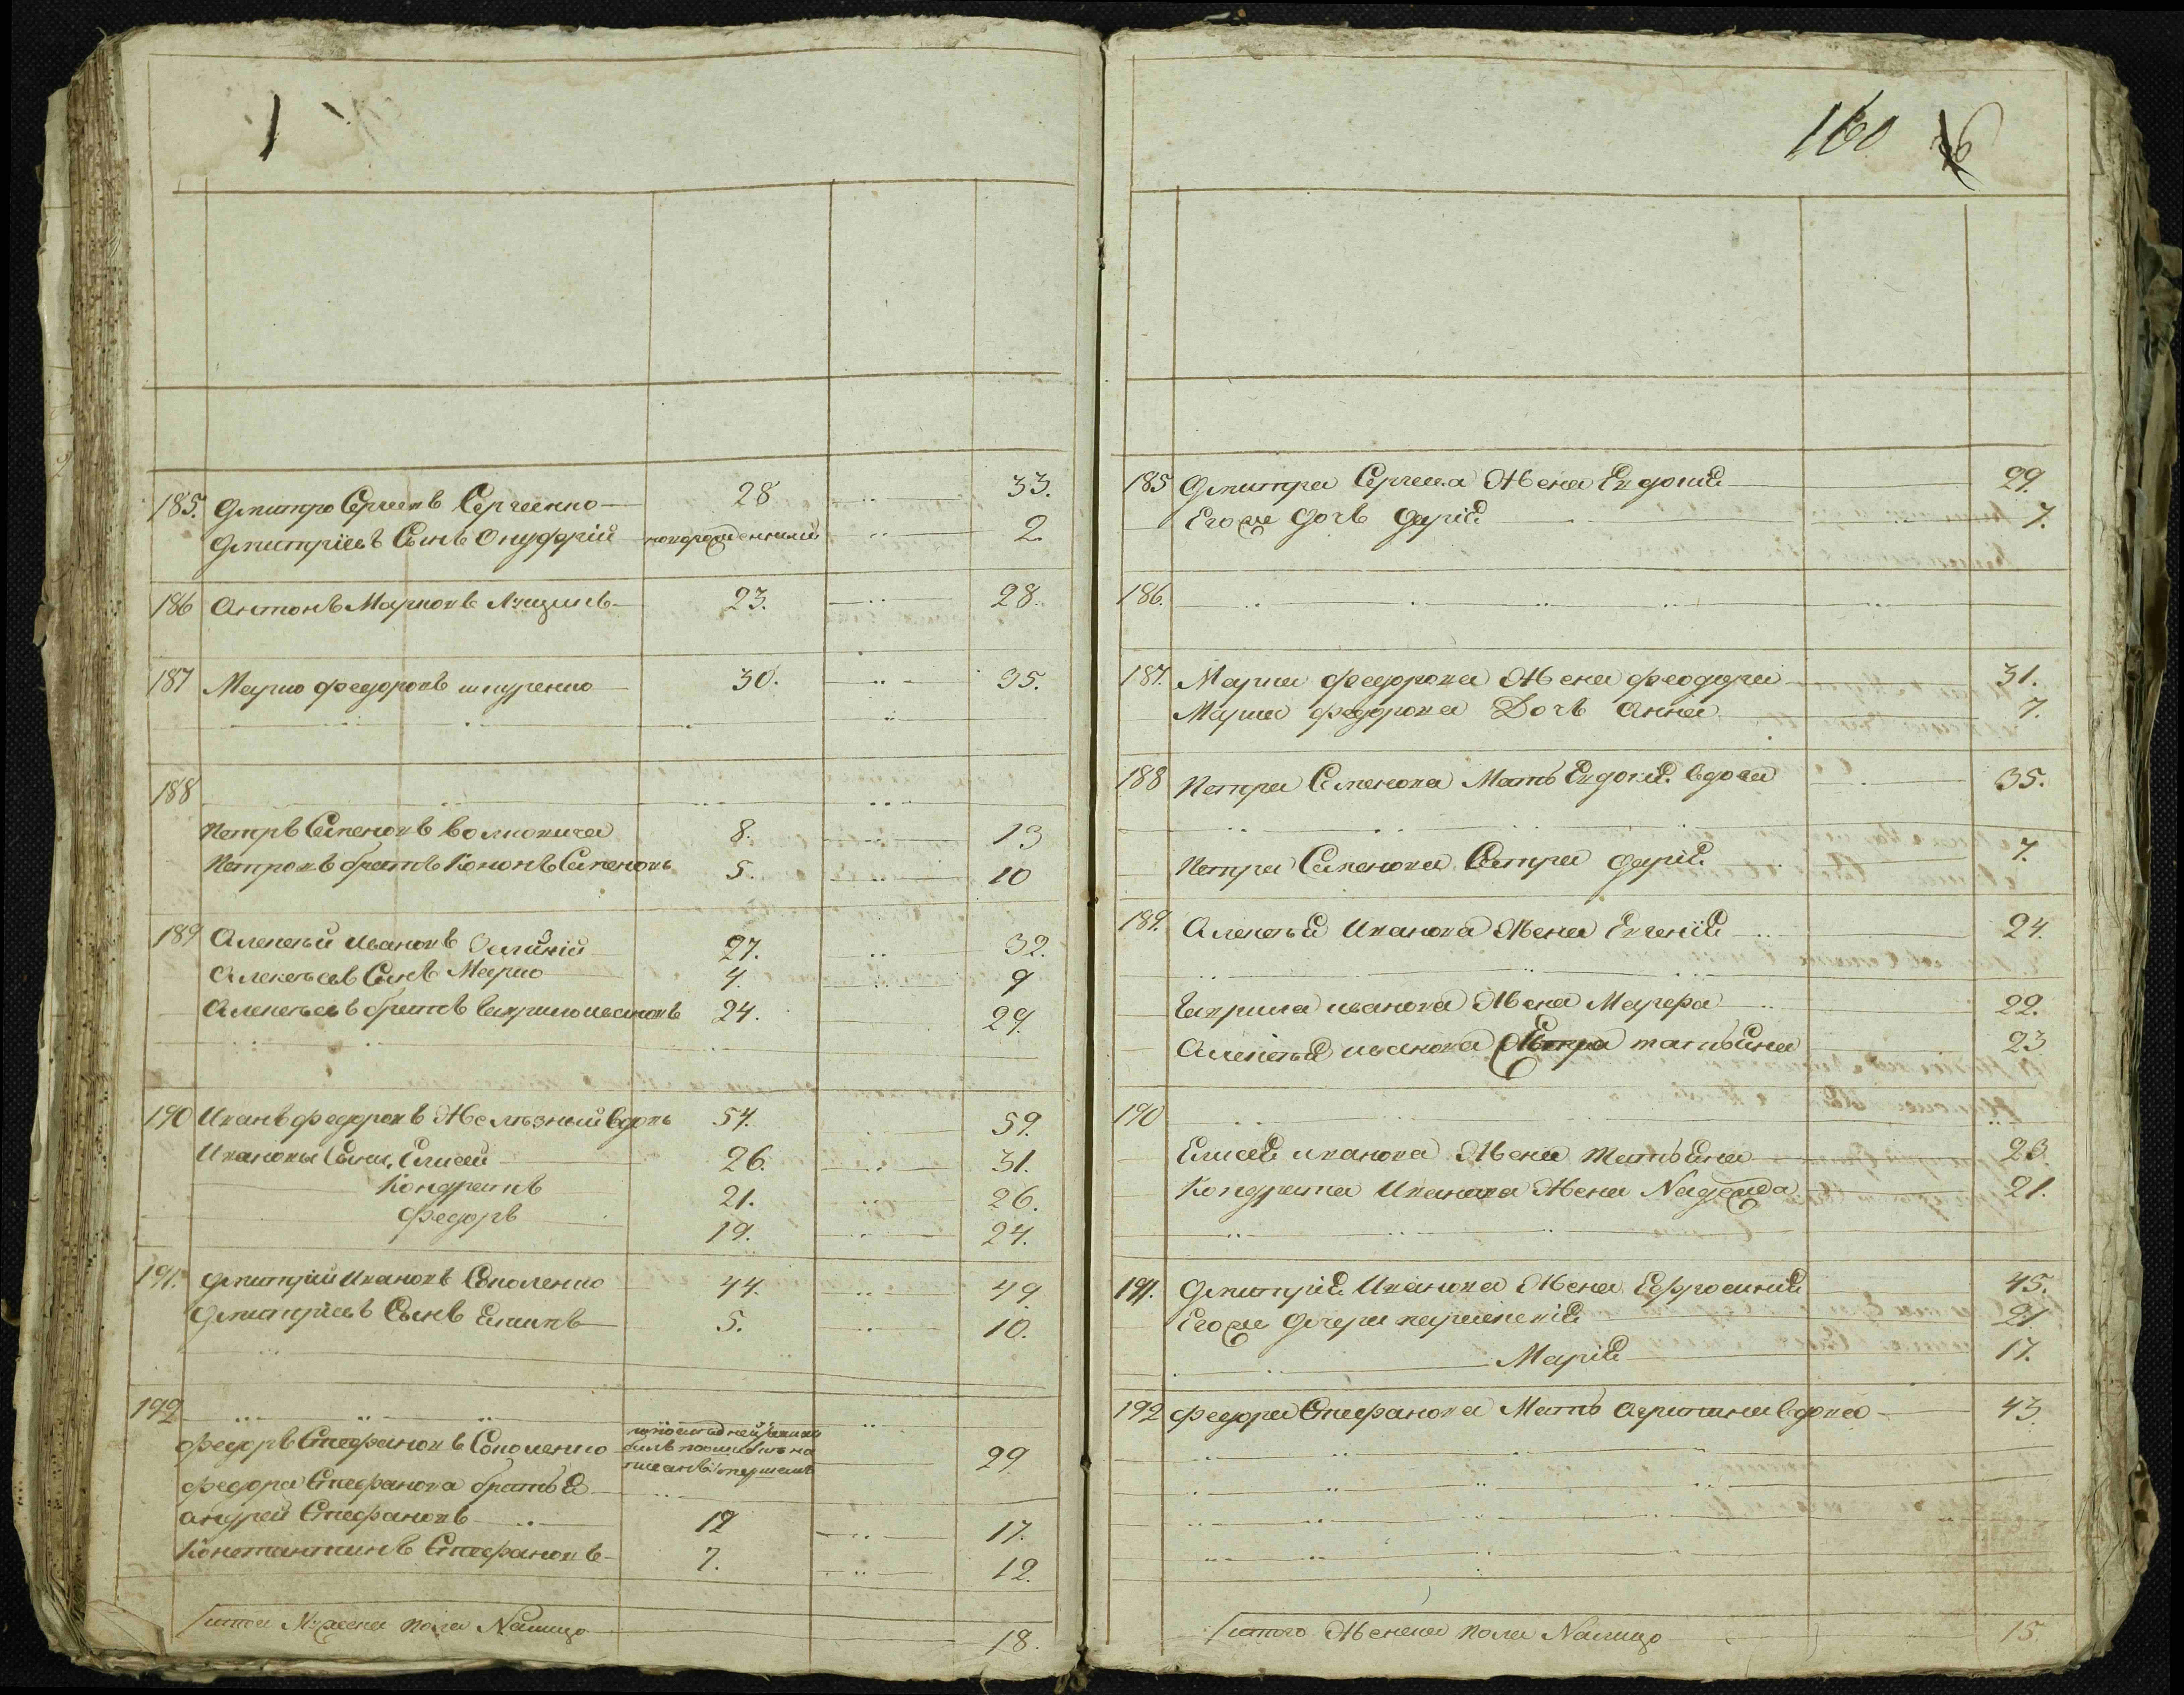 160
185. Дмитро Сергеевъ Сергеенко 28 33.
Дмитріевъ Сынъ Онуфрій новорожденный 2.
186 Антонъ Марковъ 23. 28.
187 Марко Федоровъ шпуренко 30. 35.
188
Петръ Семеновъ 8. 13
Петровъ братъ Кононъ Семеновъ 5. 10
189 Алексѣй Ивановъ 27. 32.
Алексѣевъ Сынъ Марко 4. 9
Алексѣевъ братъ Гаврило Ивановъ 24. 29.
190 Иванъ Федоровъ Желѣзный вдовъ 54. 59.
Ивановы Сыны, Елисей 26. 31.
Кондратъ 21. 26.
Федоръ 19. 24.
191. Дмитрій Ивановъ Соколенко 44. 49.
Дмитріевъ Сынъ Екимъ 5. 10.
192
Федоръ Стефановъ Соколенко 29.
Федора Стефанова братья
андрей Стефановъ 12 17.
Константинъ Стефановъ 7. 12.
Итого Мужеска пола Налицо 18.
185 Дмитра Сергеева Жена Евдокия 29.
Его же дочь Дарія 7.
186.
187. Марка Федорова Жена Феодора 31.
Марка Федорова Дочь Анна 7.
188 Петра Семенова Мать Евдокія вдова 35.
Петра Семенова Сестра Дарія 7.
189. Алексѣя Иванова Жена Евгенія 24.
Гаврила иванова Жена Марфа 22.
Алексѣя иванова Сестра татьяна 23
190
Елисея иванова Жена Татьяна 23.
Кондрата Иванова Жена Надежда 21.
191. Дмитрія Иванова Жена Ефросинія 45.
Его же Дочери 21
Марія 17.
192 Федора Стефанова Мать Агрипина вдова 43.
Итого Женска пола Налицо 15